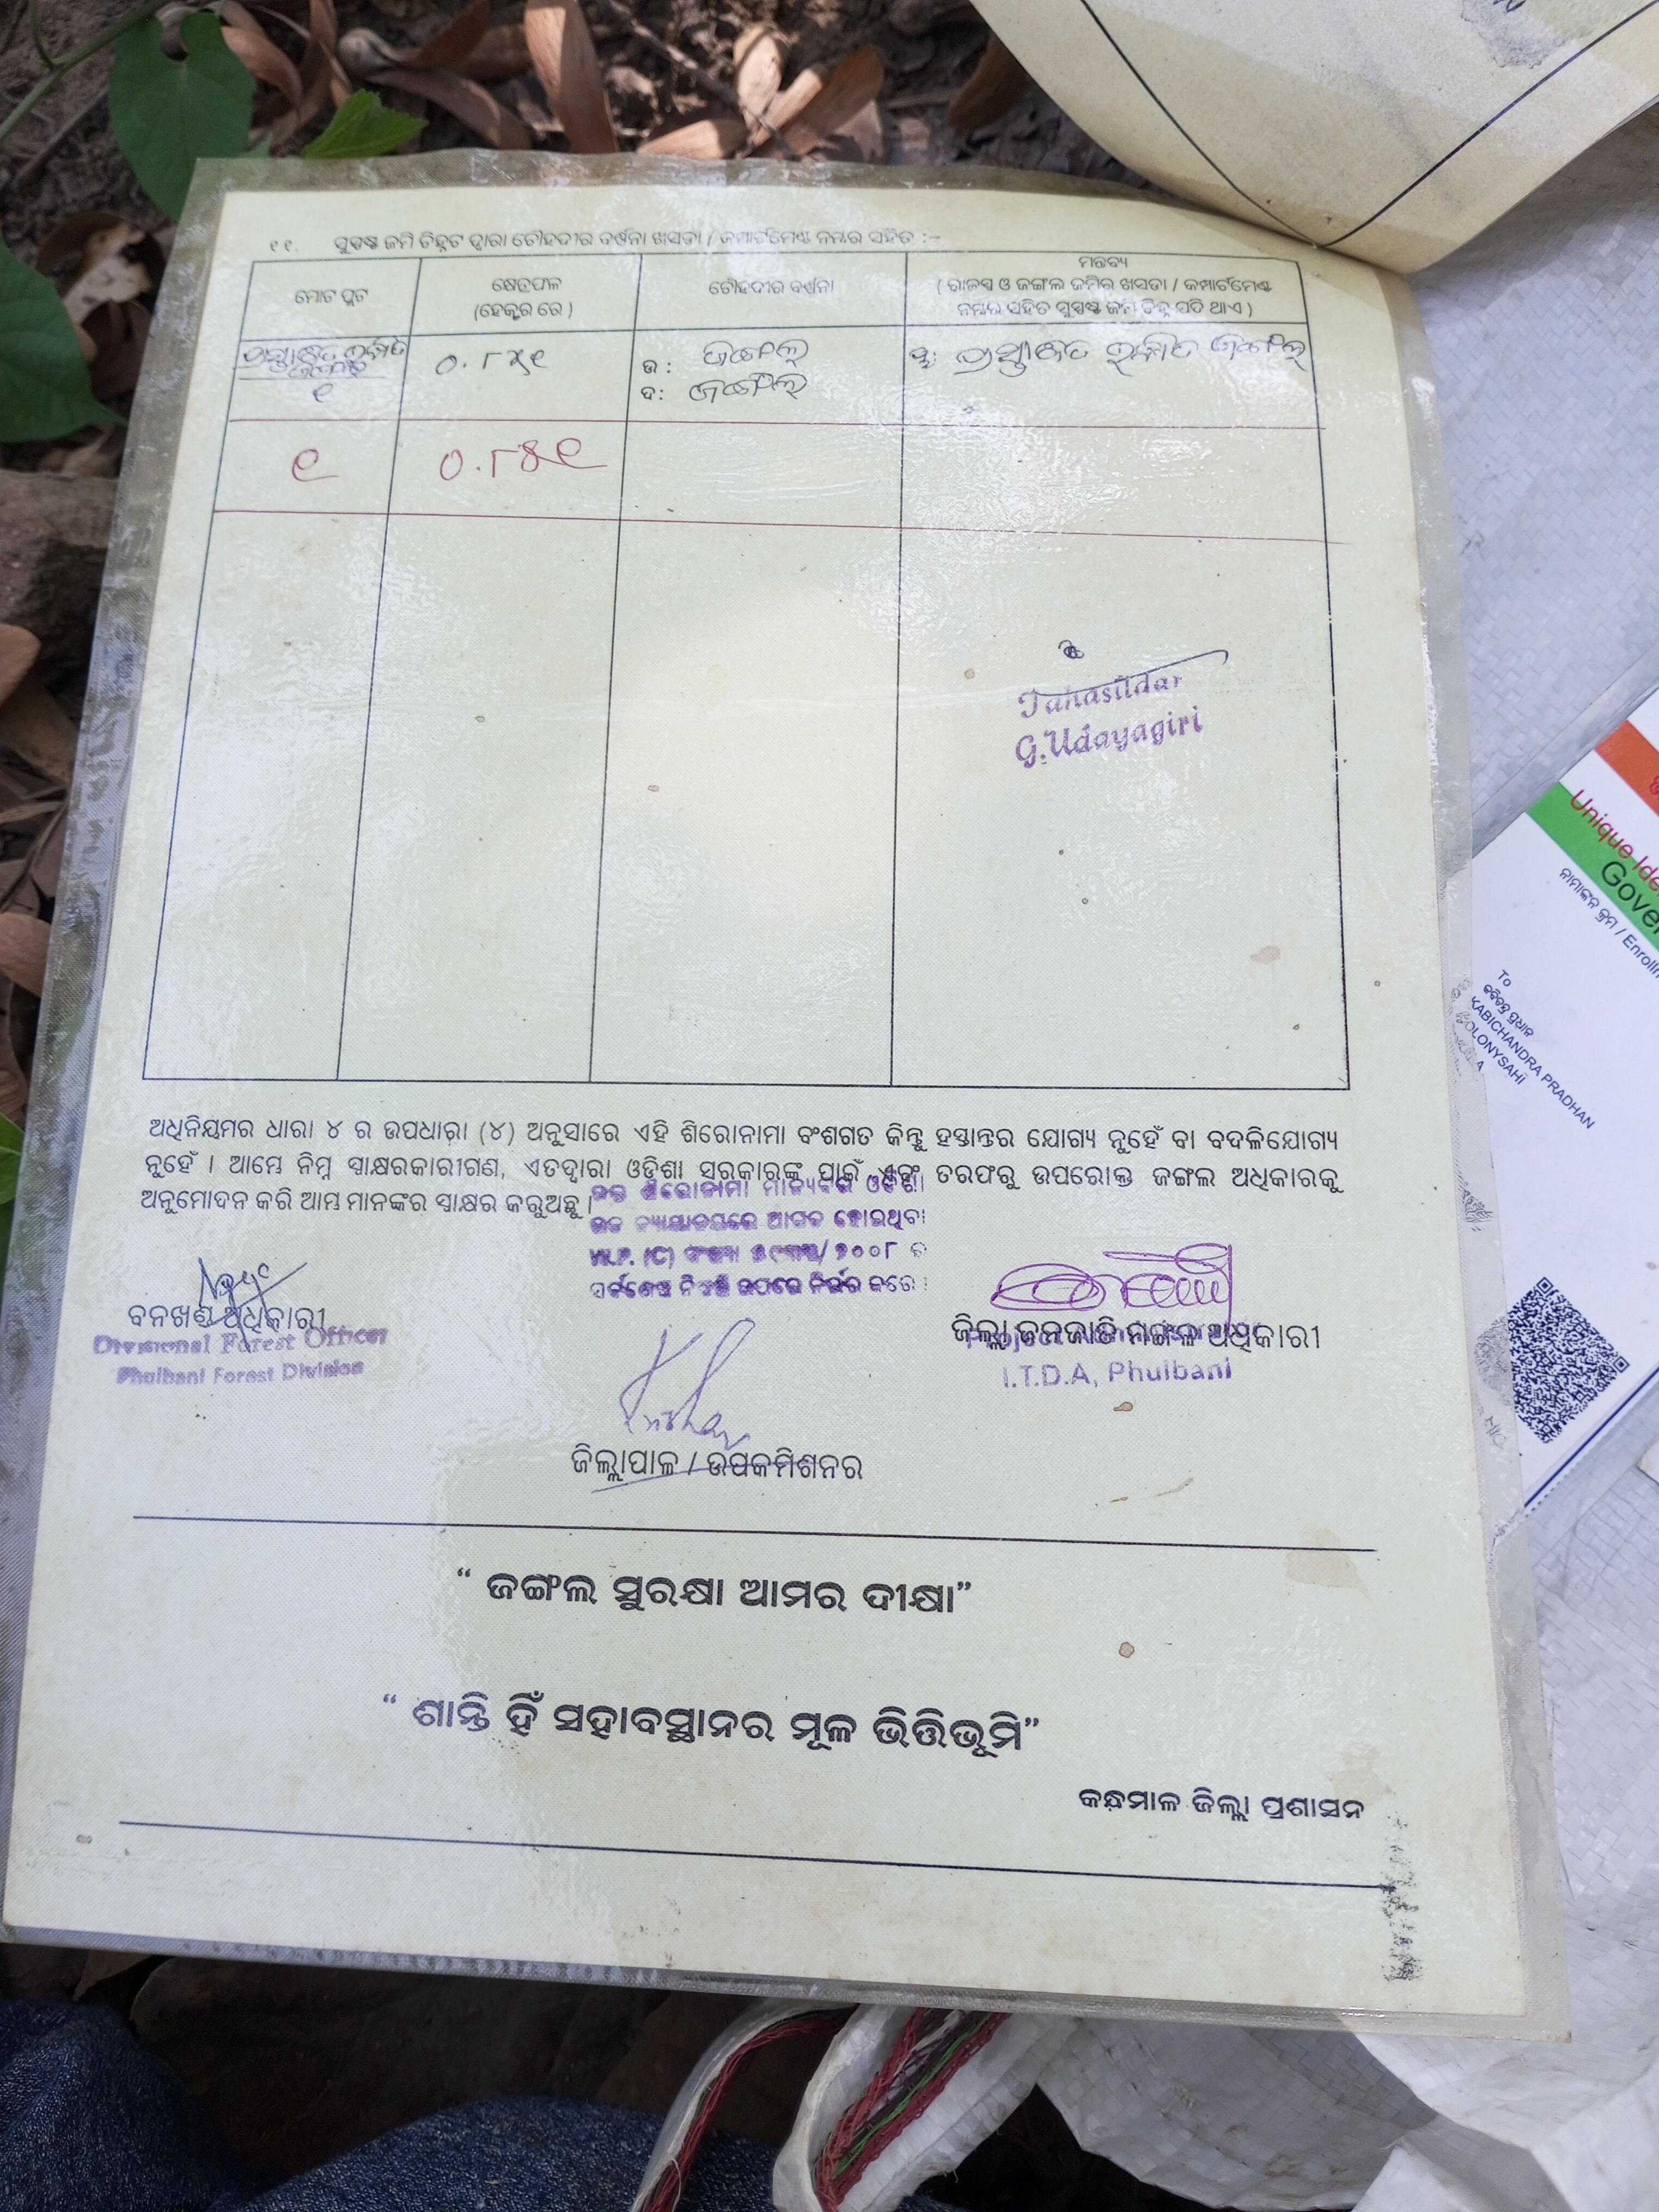 ୧୧. ସୁସ୍ପଷ୍ଟ ଜମି ଚିହ୍ନଟ ଦ୍ୱାରା ଚୌହଦୀର ବର୍ଣ୍ଣନା ଖସଡା / କମ୍ପାର୍ଟମେଣ୍ଟ ନମ୍ବର ସହିତ :-
ମୋଟ ପ୍ଲଟ
କ୍ଷେତ୍ରଫଳ
(ହେକ୍ଟର ରେ )
ଚୌହଦୀର ବର୍ଣ୍ଣନା
ମନ୍ତବ୍ୟ
( ରାଜସ୍ୱ ଓ ଜଙ୍ଗଲ ଜମିର ଖସଡା / କମ୍ପାର୍ଟମେଣ୍ଟ
ନମ୍ବର ସହିତ ସୁସ୍ପଷ୍ଟ ଜମି ଚିହ୍ନ ଯଦି ଥାଏ )
ପ୍ରସ୍ତାବିତ ଜଙ୍ଗଲ
୧
ଉ : ଜଙ୍ଗଲ
ଦ : ଜଙ୍ଗଲ
ପ୍ରସ୍ତାବିତ ଜଙ୍ଗଲ
୧
Tahasildar
G.Udayagiri
ଅଧିନିୟମର ଧାରା ୪ ର ଉପଧାରା (୪) ଅନୁସାରେ ଏହି ଶିରୋନାମା ବଂଶଗତ କିନ୍ତୁ ହସ୍ତାନ୍ତର ଯୋଗ୍ୟ ନୁହେଁ ବା ବଦଳିଯୋଗ୍ୟ
ନୁହେଁ । ଆମ୍ଭେ ନିମ୍ନ ସ୍ୱାକ୍ଷରକାରୀଗଣ, ଏତଦ୍ୱାରା ଓଡ଼ିଶା ସରକାରଙ୍କ ପାଇଁ ଏବଂ ତରଫରୁ ଉପରୋକ୍ତ ଜଙ୍ଗଲ ଅଧିକାରକୁ
ଅନୁମୋଦନ କରି ଆମ୍ଭମାନଙ୍କର ସ୍ୱାକ୍ଷର କରୁଅଛୁ ।
ଉକ୍ତ ଶିରୋନାମା ମାନ୍ୟବର ଓଡିଶା
ଉଚ୍ଚ ନ୍ୟାୟାଳୟରେ ଆଗତ ହୋଇଥିବା
W.P. (C) ସଂଖ୍ୟା /୨୦୦୮ ର
ସର୍ବଶେଷ ନିଷ୍ପତ୍ତି ଉପରେ ନିର୍ଭର କରେ ।
ବନଖଣ୍ଡ ଅଧିକାରୀ
Divisional Forest Officer
Phulbani Forest Division
ଜିଲ୍ଲା ଜନଜାତି ମଙ୍ଗଳ ଅଧିକାରୀ
I.T.D.A, Phulbani
ଜିଲ୍ଲାପାଳ / ଉପକମିଶନର
“ ଜଙ୍ଗଲ ସୁରକ୍ଷା ଆମର ଦୀକ୍ଷା”
“ ଶାନ୍ତି ହିଁ ସହାବସ୍ଥାନର ମୂଳ ଭିତ୍ତିଭୂମି”
କନ୍ଧମାଳ ଜିଲ୍ଲା ପ୍ରଶାସନ
Unique
ନାମାଙ୍କନ କ୍ରମ /
To
କବିଚନ୍ଦ୍ର ପ୍ରଧାନ
KABICHANDRA PRADHAN